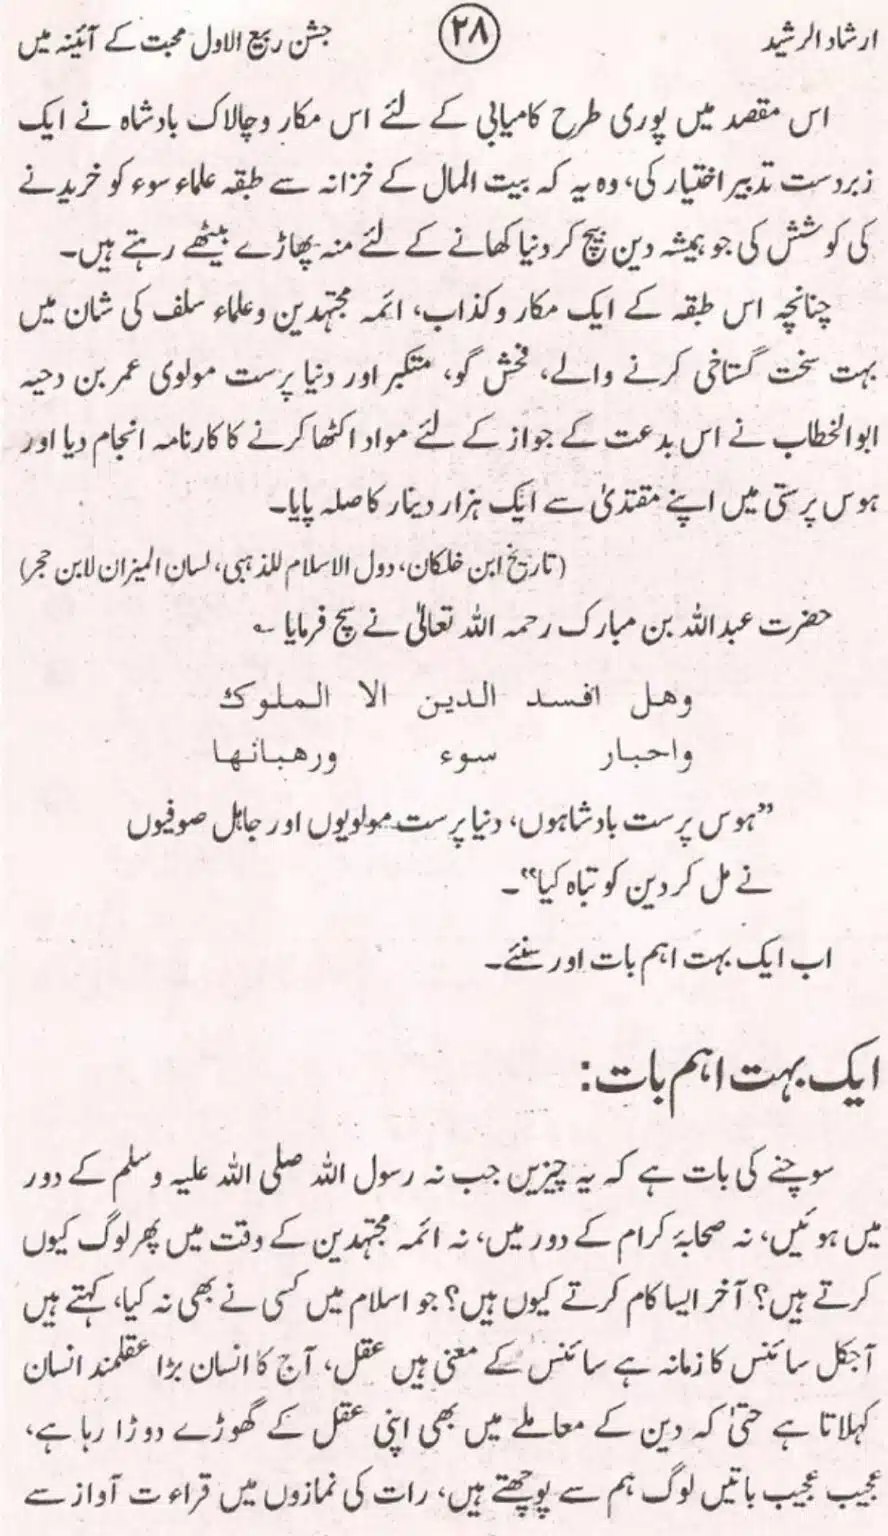 ارشاد الرشید ۲۸ جشن ربیع الاول محبت کے آئینہ میں
اس مقصد میں پوری طرح کامیابی کے لئے اس مکار وچالاک بادشاہ نے ایک
زبردست تدبیر اختیار کی، وہ یہ کہ بیت المال کے خزانہ سے طبقہ علماء سوء کو خریدنے
کی کوشش کی جو ہمیشہ دین بیچ کر دنیا کھانے کے لئے منہ پھاڑے بیٹھے رہتے ہیں۔
چنانچہ اس طبقہ کے ایک مکار وکذاب، ائمہ مجتہدین وعلماء سلف کی شان میں
بہت سخت گستاخی کرنے والے، فحش گو، متکبر اور دنیا پرست مولوی عمر بن دحیہ
ابوالخطاب نے اس بدعت کے جواز کے لئے مواد اکٹھا کرنے کا کارنامہ انجام دیا اور
ہوس پرستی میں اپنے مقتدیٰ سے ایک ہزار دینار کا صلہ پایا۔
(تاریخ ابن خلکان، دول الاسلام للذہبی، لسان المیزان لابن حجر)
حضرت عبداللہ بن مبارک رحمہ اللہ تعالیٰ نے سچ فرمایا ؎
وهل افسد الدين الا الملوك
واحبار سوء ورهبانها
”ہوس پرست بادشاہوں، دنیا پرست مولویوں اور جاہل صوفیوں
نے مل کر دین کو تباہ کیا“۔
اب ایک بہت اہم بات اور سنئے۔
ایک بہت اہم بات:
سوچنے کی بات ہے کہ یہ چیزیں جب نہ رسول اللہ صلی اللہ علیہ وسلم کے دور
میں ہوئیں، نہ صحابۂ کرام کے دور میں، نہ ائمہ مجتہدین کے وقت میں پھر لوگ کیوں
کرتے ہیں؟ آخر ایسا کام کرتے کیوں ہیں؟ جو اسلام میں کسی نے بھی نہ کیا، کہتے ہیں
آجکل سائنس کا زمانہ ہے سائنس کے معنی ہیں عقل، آج کا انسان بڑا عقلمند انسان
کہلاتا ہے حتیٰ کہ دین کے معاملے میں بھی اپنی عقل کے گھوڑے دوڑا رہا ہے،
عجیب عجیب باتیں لوگ ہم سے پوچھتے ہیں، رات کی نمازوں میں قراءت آواز سے